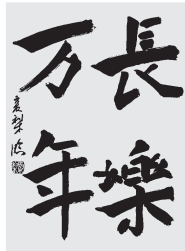 長樂
万年